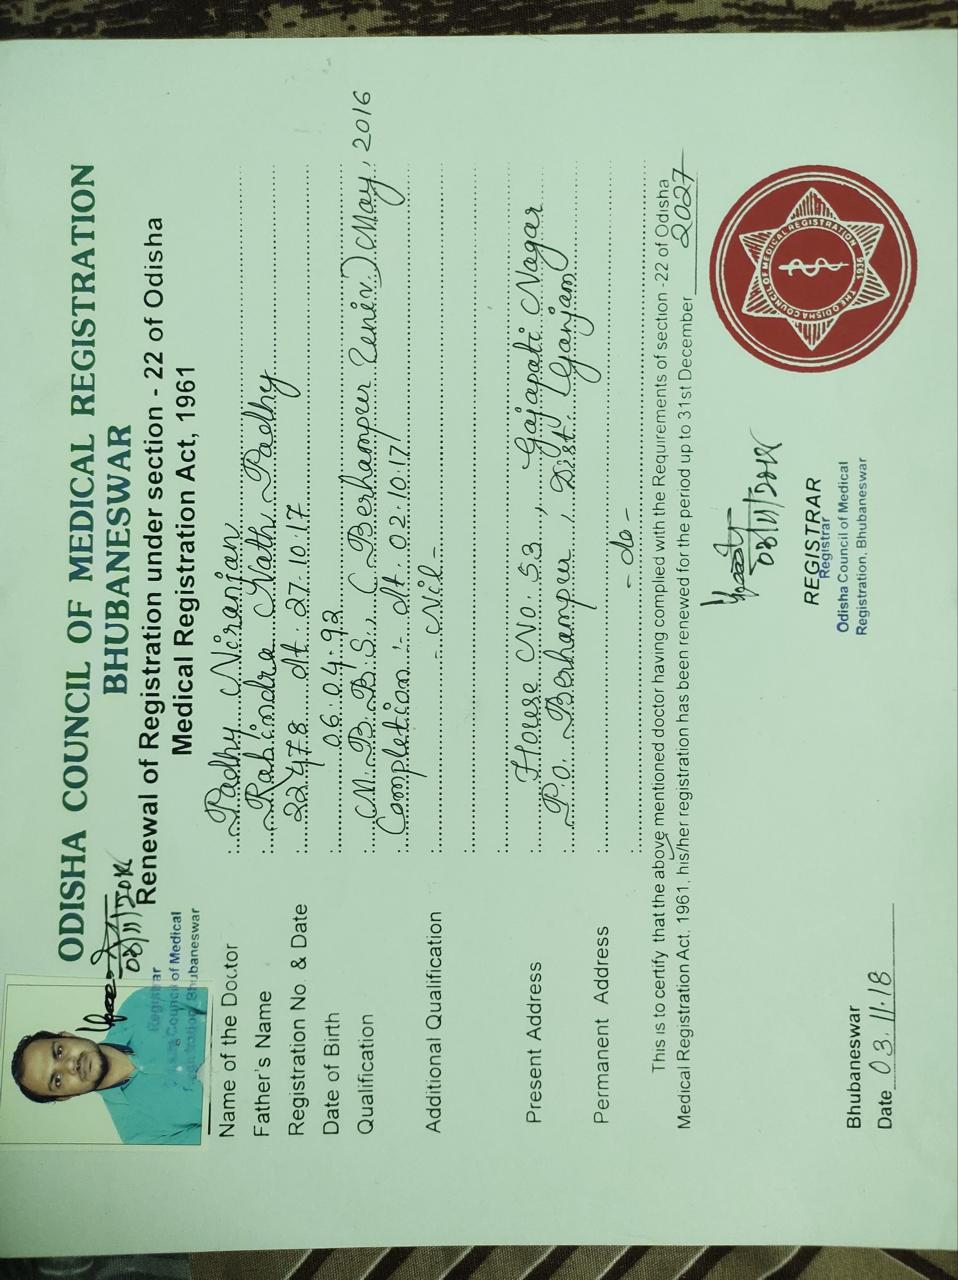 ODISHA COUNCIL OF MEDICAL REGISTRATION
BHUBANESWAR
Renewal of Registration under section - 22 of Odisha
Medical Registration Act, 1961
Registrar
Council of Medical
Registration, Bhubaneswar
Name of the Doctor : Padhy Niranjan
Father's Name : Rabindra Nath Padhy
Registration No. & Date : 22478 dt. 27.10.17
Date of Birth : 06.04.92
Qualification : M.B.B.S., (Berhampur Univ.) May, 2016
: Completion :- dt. 02.10.17
Additional Qualification : - Nil -
:
:
Present Address : House No. 53, Gajapati Nagar
: P.O. Berhampur, Dist. Ganjam
Permanent Address : - do -
:
This is to certify that the above mentioned doctor having complied with the Requirements of section -22 of Odisha
Medical Registration Act, 1961, his/her registration has been renewed for the period up to 31st December 2027
THE ODISHA COUNCIL OF MEDICAL REGISTRATION
1936
REGISTRAR
Registrar
Odisha Council of Medical
Registration, Bhubaneswar
Bhubaneswar
Date 03.11.18